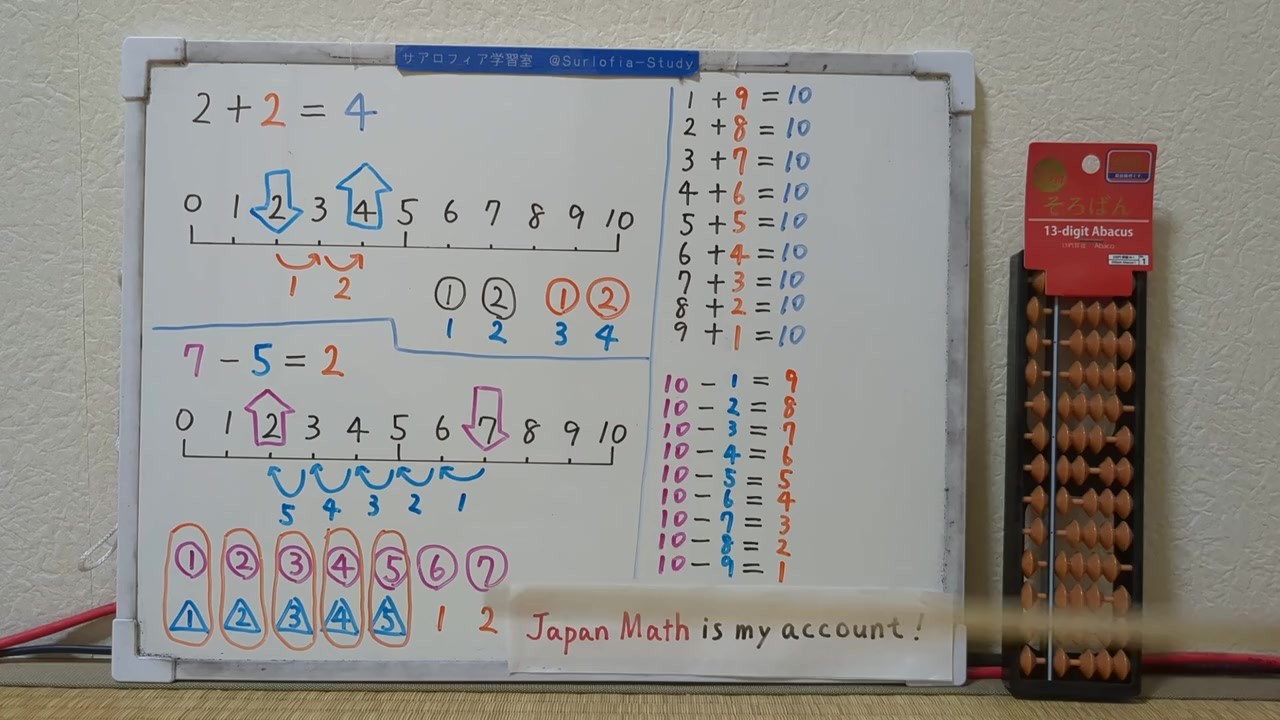 サアロフィア学習室 @Surlofia-Study
2 + 2 = 4
0 1 2 3 4 5 6 7 8 9 10
1 2
① ② ① ②
1 2 3 4
7 - 5 = 2
0 1 2 3 4 5 6 7 8 9 10
5 4 3 2 1
① ② ③ ④ ⑤ ⑥ ⑦
1 2 3 4 5 1 2
1 + 9 = 10
2 + 8 = 10
3 + 7 = 10
4 + 6 = 10
5 + 5 = 10
6 + 4 = 10
7 + 3 = 10
8 + 2 = 10
9 + 1 = 10
10 - 1 = 9
10 - 2 = 8
10 - 3 = 7
10 - 4 = 6
10 - 5 = 5
10 - 6 = 4
10 - 7 = 3
10 - 8 = 2
10 - 9 = 1
Japan Math is my account!
そろばん
13-digit Abacus